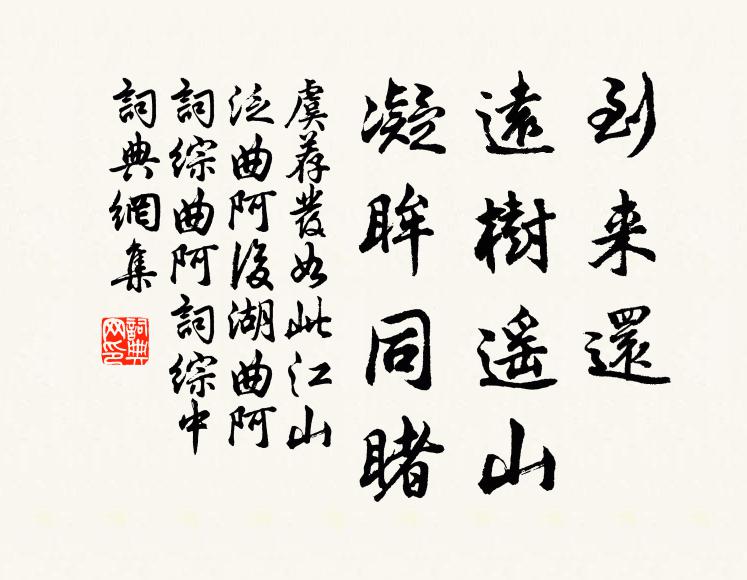 到来還
遠樹遥山
凝眸同睹
虞荐發如此江山
泛曲阿後湖曲阿
詞綜曲阿詞綜中
詞典網集
詞典網印